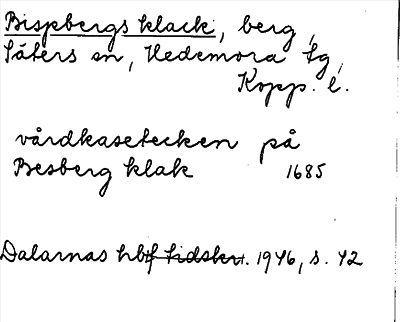 Bispbergs klack, berg,
Säters sn, Hedemora tg,
Kopp. l.
vårdkasetecken på
Besberg klak 1685
Dalarnas hbf tidskr. 1946, s. 42